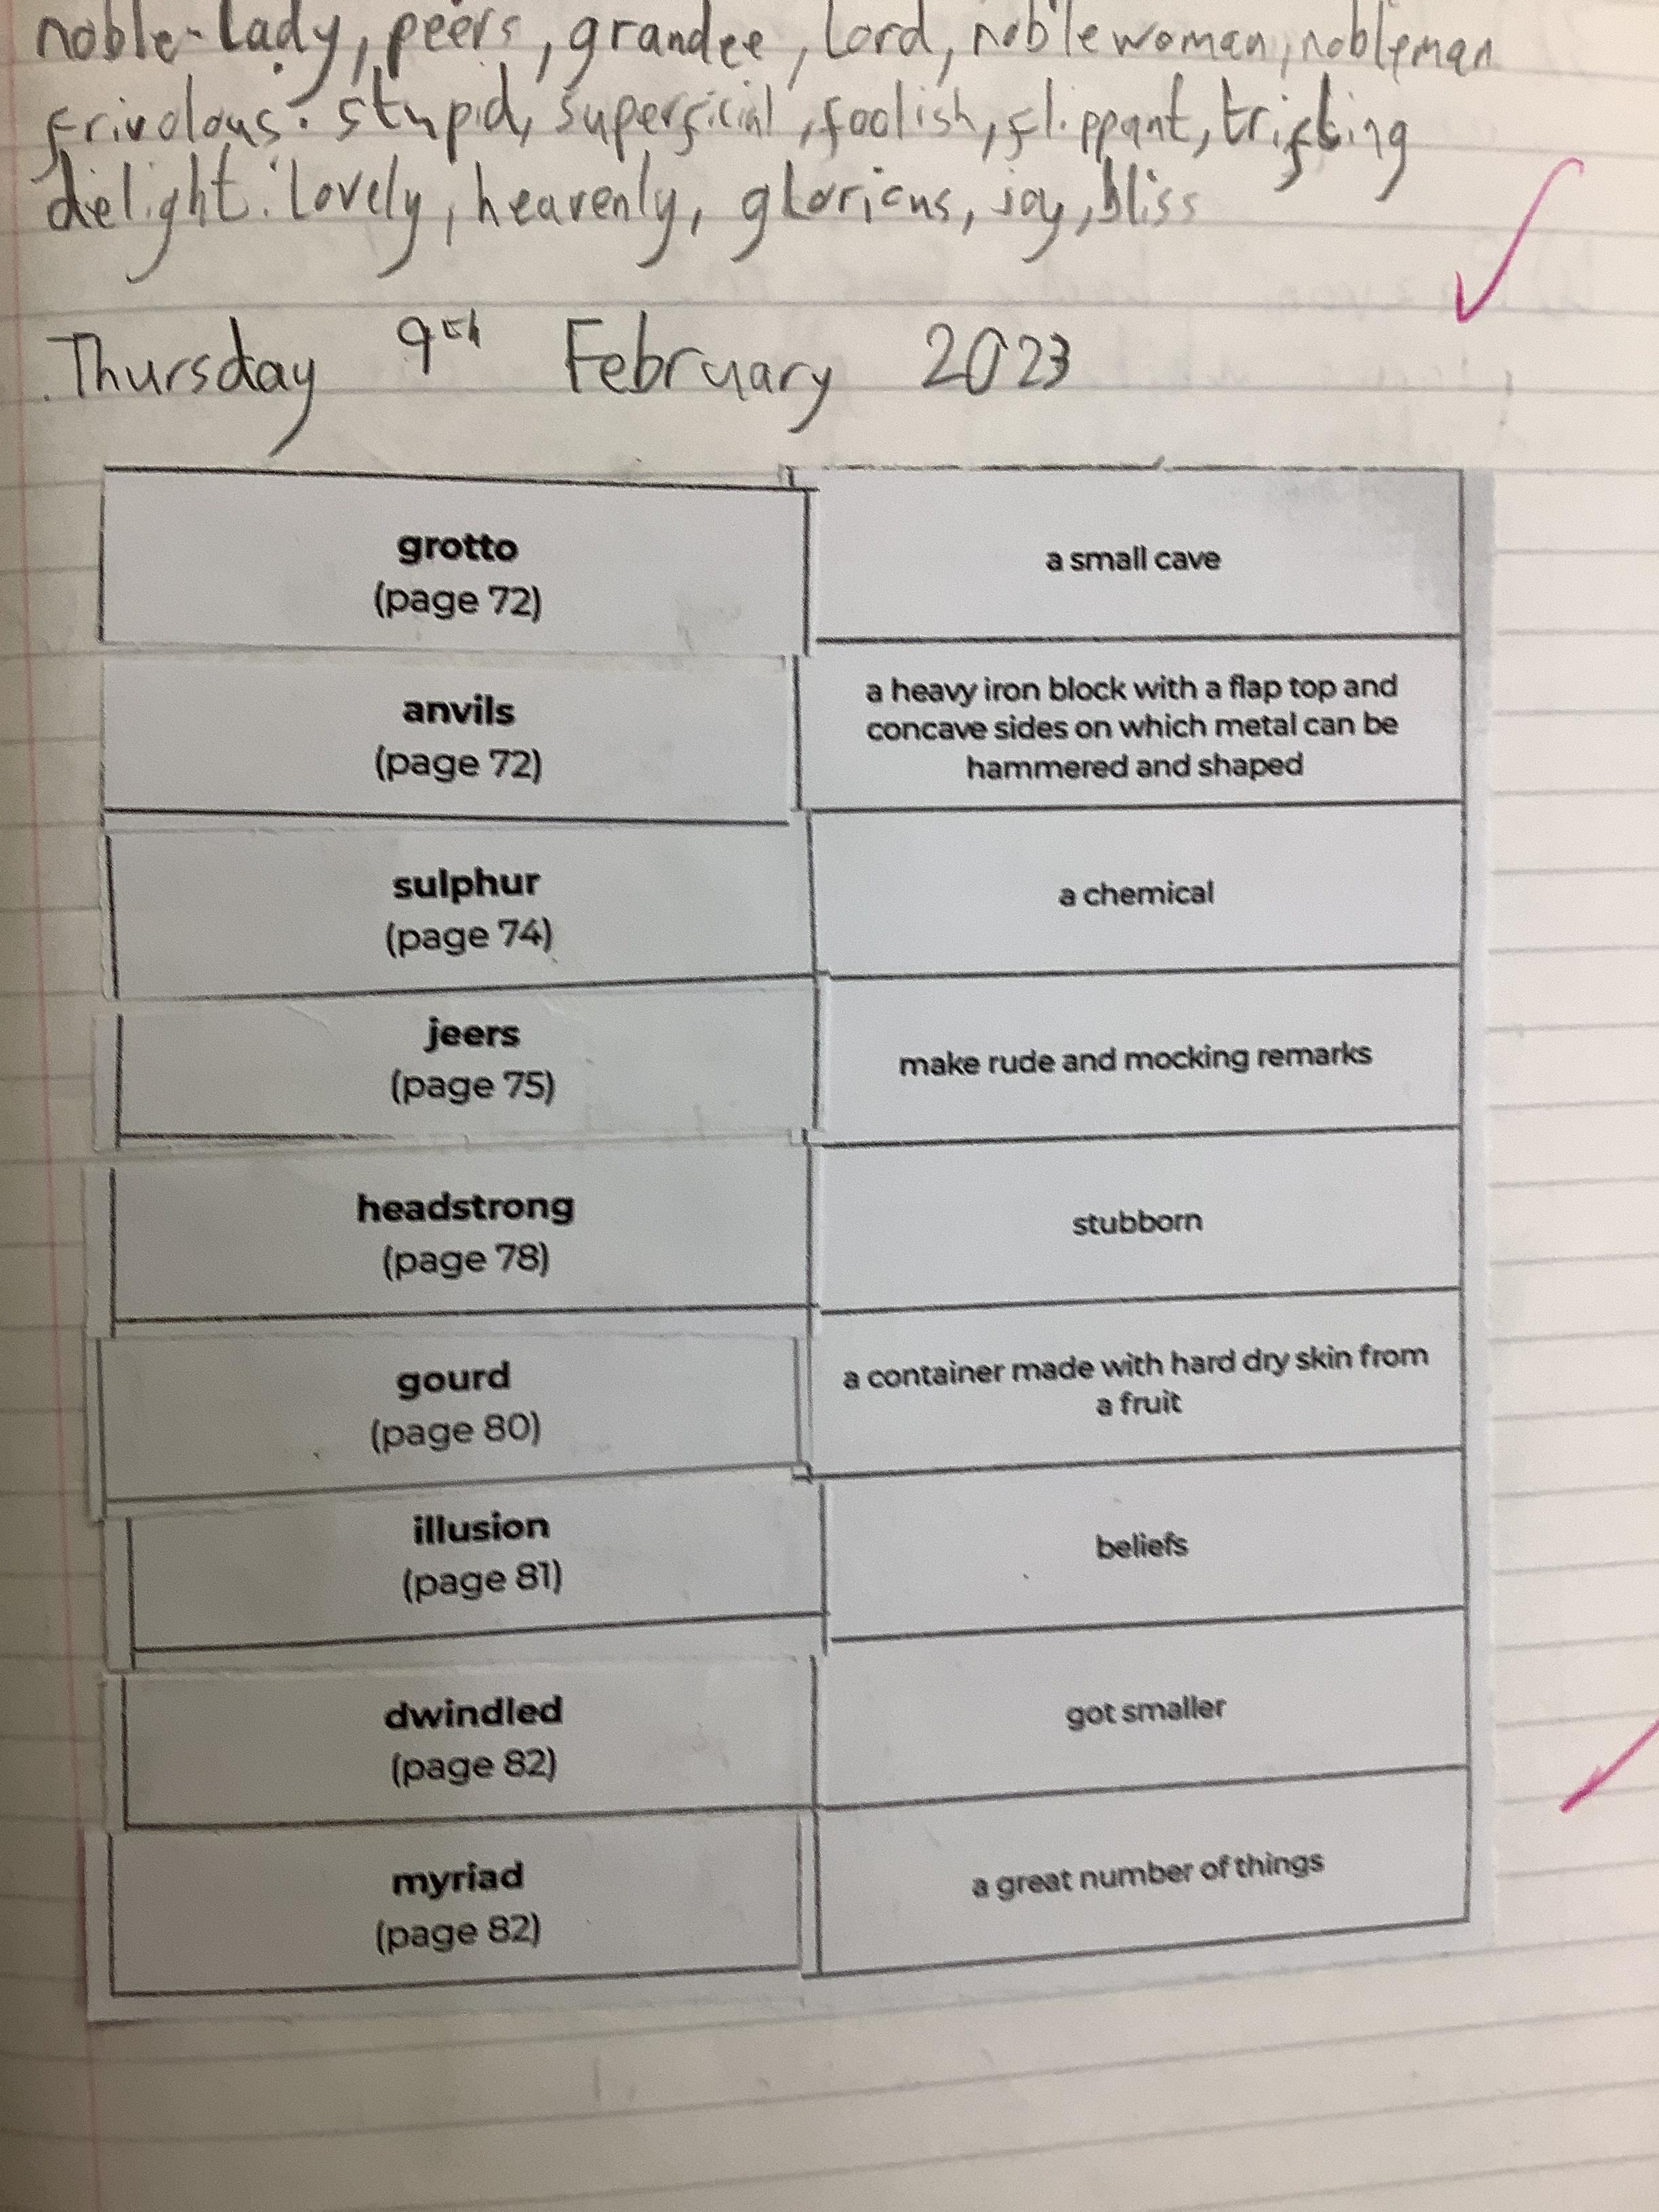 noble-Lady, peers, grandee, Lord, noblewoman, nobleman
frivolous: stupid, superficial, foolish, flippant, trifling
delight: Lovely, heavenly, glorious, joy, bliss
Thursday 9th February 2023
grotto
(page 72)
a small cave
anvils
(page 72)
a heavy iron block with a flap top and
concave sides on which metal can be
hammered and shaped
sulphur
(page 74)
a chemical
jeers
(page 75)
make rude and mocking remarks
headstrong
(page 78)
stubborn
gourd
(page 80)
a container made with hard dry skin from
a fruit
illusion
(page 81)
beliefs
dwindled
(page 82)
got smaller
myriad
(page 82)
a great number of things